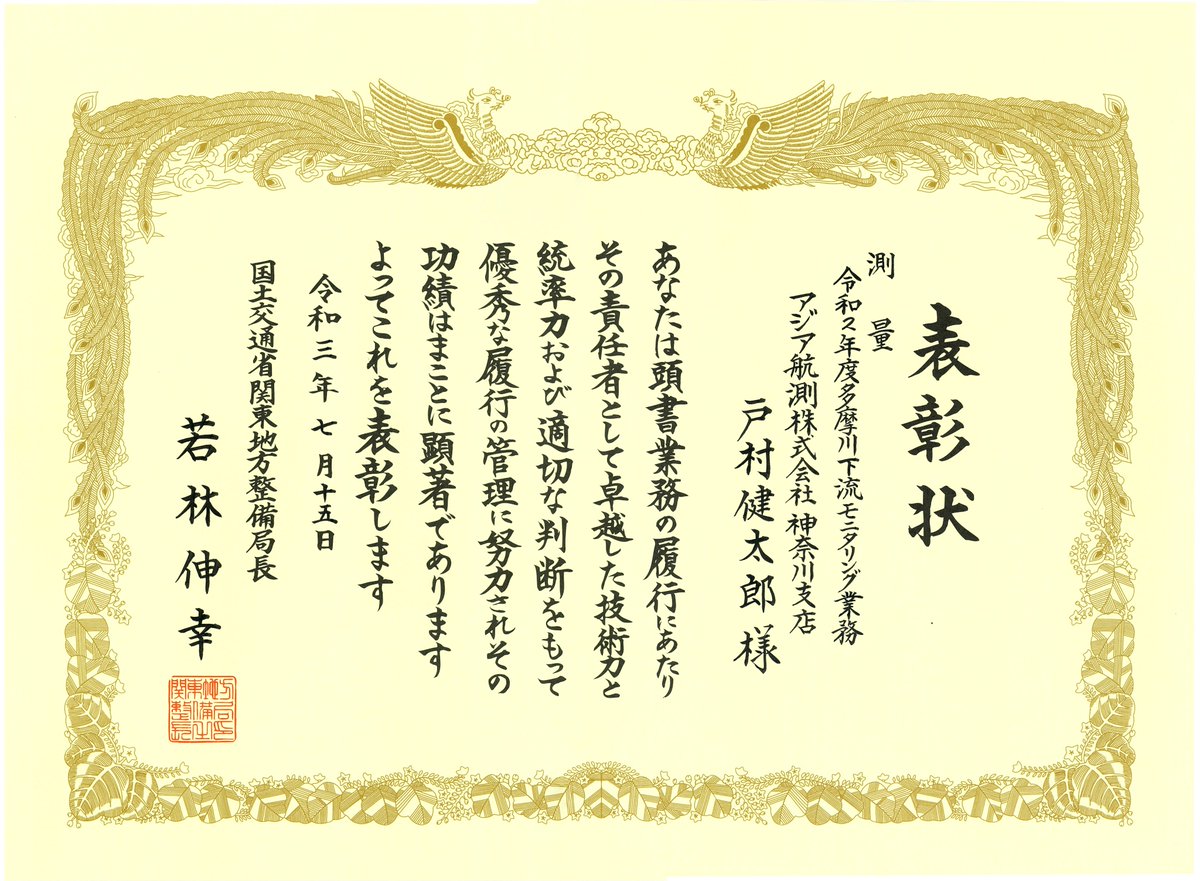 表彰状
測量
令和2年度多摩川下流モニタリング業務
アジア航測株式会社 神奈川支店
戸村健太郎様
あなたは頭書業務の履行にあたり
その責任者として卓越した技術力と
統率力および適切な判断をもって
優秀な履行の管理に努力されその
功績はまことに顕著であります
よってこれを表彰します
令和三年七月十五日
国土交通省関東地方整備局長
若林伸幸